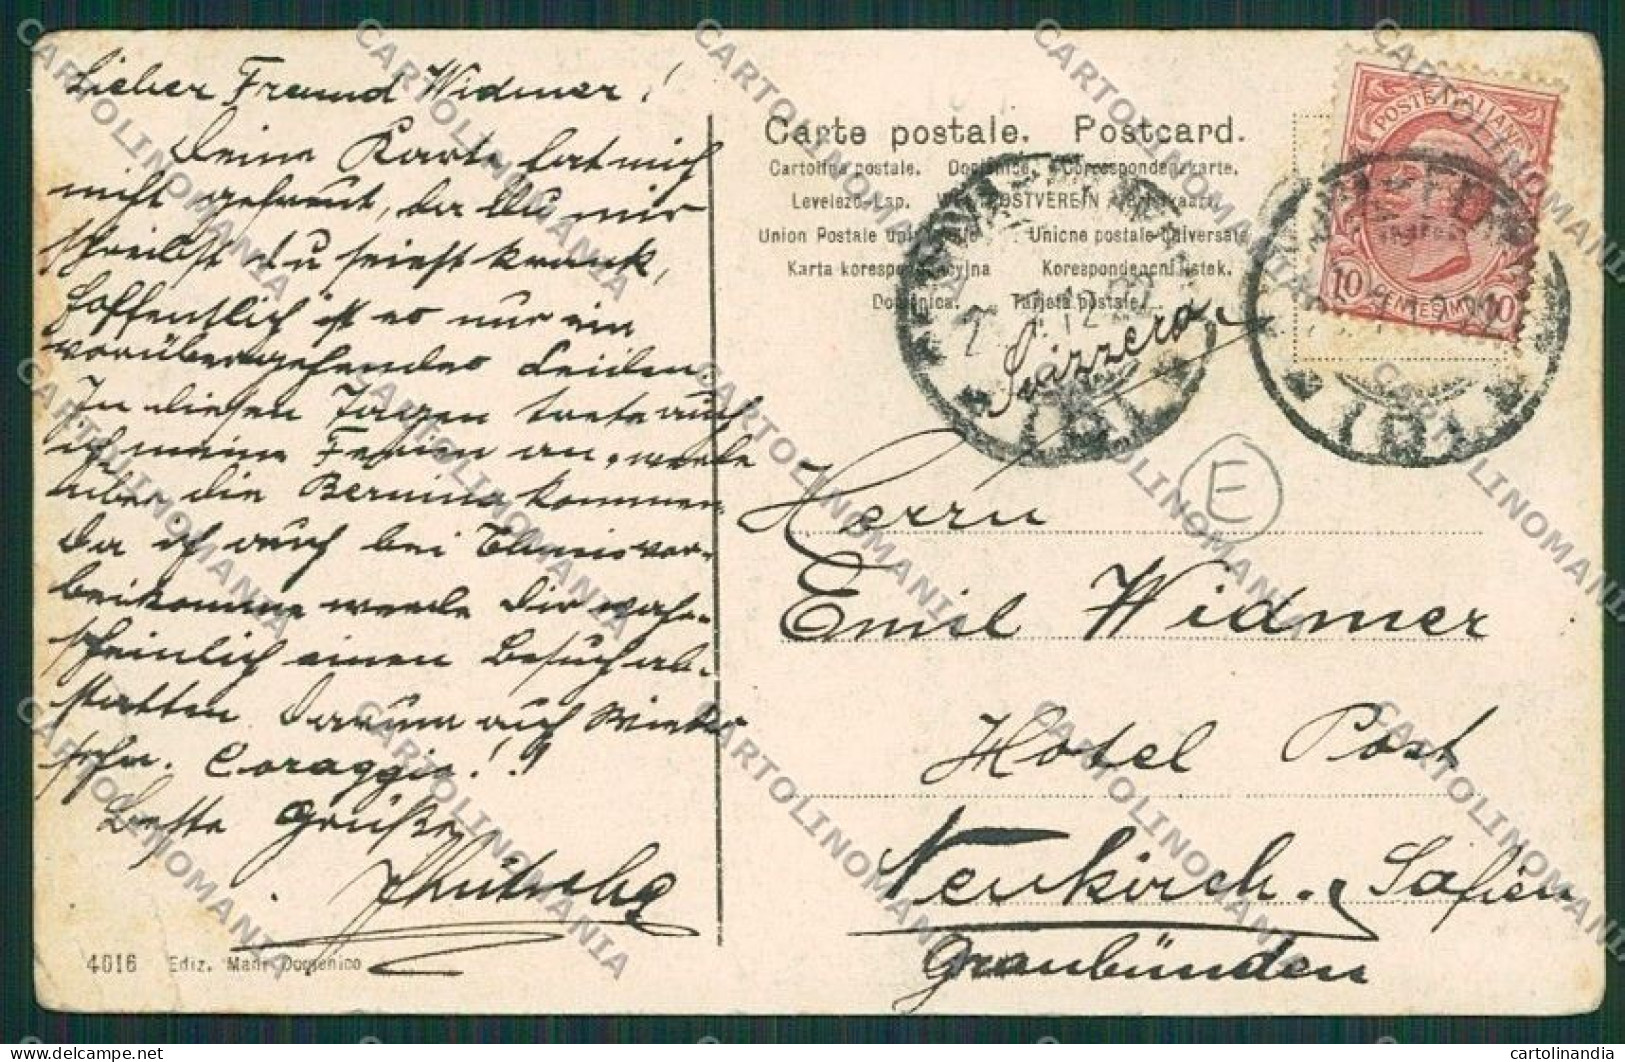 Lieber Freund Widmer!
Deine Karte hat mich
nicht gefreut, da Du mir
schreibst du seiest krank,
hoffentlich ist es nur ein
vorübergehendes Leiden
In diesen Tagen trete auch
ich meine Ferien an, werde
über die Bernina kommen
Da ich auch bei Thusis vor-
beikomme werde Dir wahr-
scheinlich einen Besuch ab-
statten. Darum auf Wieder-
sehn. Coraggio!!
Beste Grüße
4016 Ediz. Domenico
Carte postale. Postcard.
Cartolina postale. Dopisnice. Correspondenzkarte.
Levelező-Lap. WELTPOSTVEREIN Briefkaart.
Union Postale universelle Unione postale universale
Karta korespondencyjna Korespondenční lístek.
Dopisnica. Tarjeta postale.
Svizzera
POSTE ITALIANE
10 CENTESIMI 10
E
Herrn
Emil Widmer
Hotel Post
Neukirch. Safien
Graubünden
CARTOLINOMANIA
delcampe.net
cartolinandia